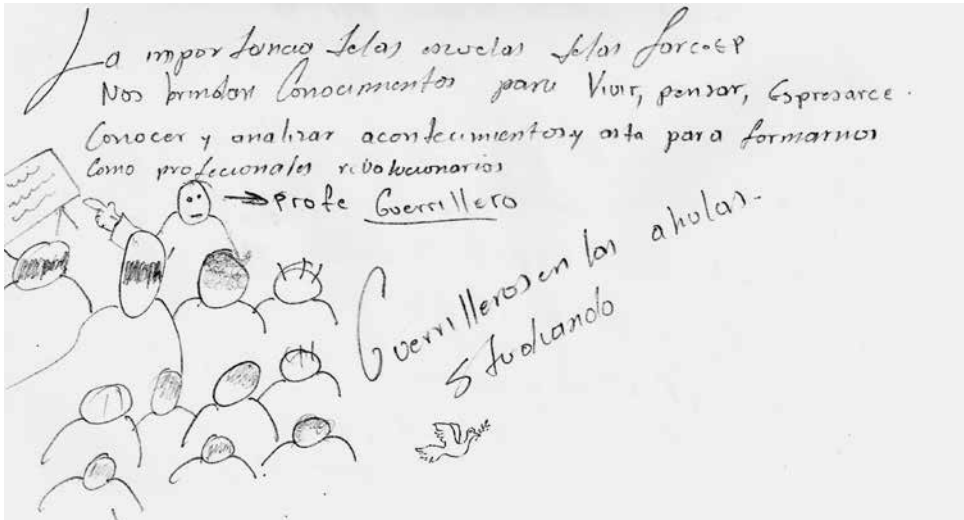 La importancia delas escuelas delas farc-EP
Nos brindan Conocimientos para Vivir, pensar, Espresarce.
Conocer y analizar acontecimientos y asta para formarnos
Como profecionales revolucionarios
→ Profe Guerrillero
Guerrilleros en las ahulas.
Studiando